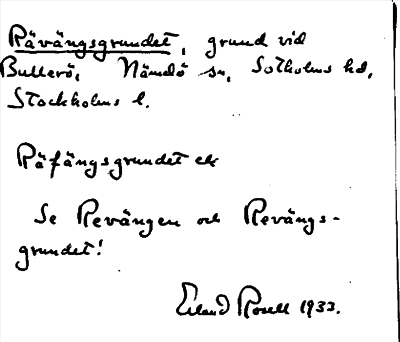 Rävängsgrundet, grund vid
Bullerö, Nämdö sn, Sotholms hd,
Stockholms l.
Räfängsgrundet ek
Se Revängen och Revängs-
grundet!
Erland Rosell 1933.